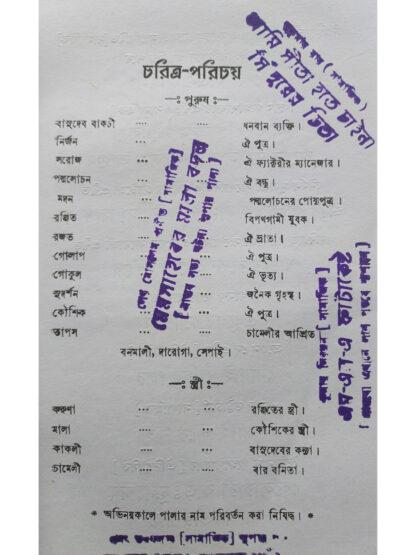 চরিত্র-পরিচয়
—: পুরুষ :—
বাসুদেব বাকচী .... .... ধনবান ব্যক্তি।
নির্জন ... .... ঐ পুত্র।
সরোজ ... ... ঐ ফ্যাক্টরীর ম্যানেজার।
পদ্মলোচন .... ... ঐ বন্ধু।
মদন পদ্মলোচনের পোষ্যপুত্র।
রঞ্জিত .... বিপথগামী যুবক।
রজত .... ঐ ভ্রাতা।
গোলাপ ... ঐ পুত্র।
গোকুল .... ঐ ভৃত্য।
সুদর্শন .... জনৈক গৃহস্থ।
কৌশিক ... ... ঐ পুত্র।
তাপস .... .... চামেলীর আশ্রিত
বনমালী, দারোগা, সেপাই।
—: স্ত্রী :—
করুণা ... ... রঞ্জিতের স্ত্রী।
মালা ... ... কৌশিকের স্ত্রী।
কাকলী .... ... বাসুদেবের কন্যা।
চামেলী ... ... বার বনিতা।
* অভিনয়কালে পালার নাম পরিবর্তন করা নিষিদ্ধ। *
আমি সীতা হতে চাইনা
সিঁদুরের চিতা
[সামাজিক]
এম-এ-এ ফাটাকেষ্ট
[সামাজিক]